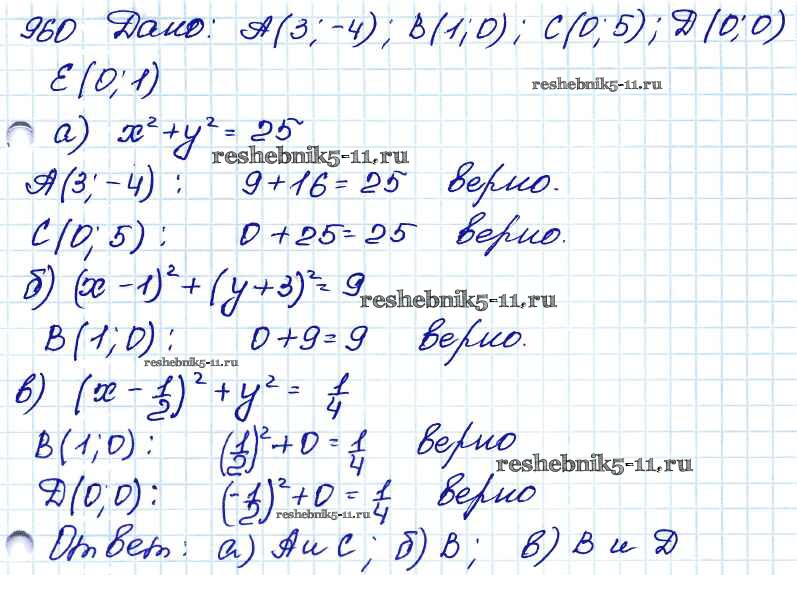 960 Дано: A(3;-4); B(1;0); C(0;5); D(0;0)
E(0;1)
reshebnik5-11.ru
а) x²+y²= 25
reshebnik5-11.ru
A(3;-4): 9+16=25 верно.
C(0;5): 0+25=25 верно.
б) (x-1)²+(y+3)²=9
reshebnik5-11.ru
B(1;0): 0+9=9 верно.
reshebnik5-11.ru
в) (x-1/2)²+y²= 1/4
B(1;0): (1/2)²+0=1/4 верно
reshebnik5-11.ru
D(0;0): (-1/2)²+0=1/4 верно
reshebnik5-11.ru
Ответ: а) A и C; б) B; в) B и D